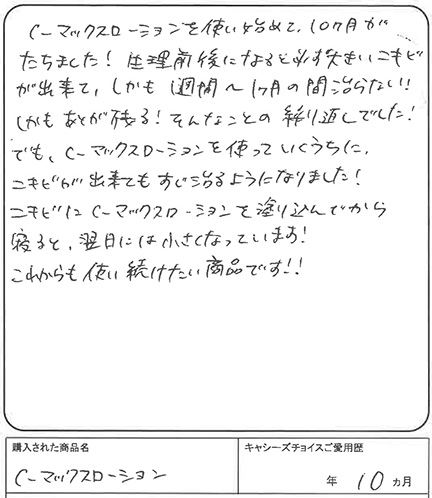 C-マックスローションを使い始めて、10ヶ月が
たちました！生理前後になると必ず大きいニキビ
が出来て、しかも1週間〜1ヶ月の間治らない!!
しかもあとが残る！そんなことの繰り返しでした！
でも、C-マックスローションを使っていくうちに、
ニキビが出来てもすぐ治るようになりました！
ニキビにC-マックスローションを塗り込んでから
寝ると、翌日には小さくなっています！
これからも使い続けたい商品です!!
購入された商品名
キャシーズチョイスご愛用歴
C-マックスローション
年 10 ヵ月